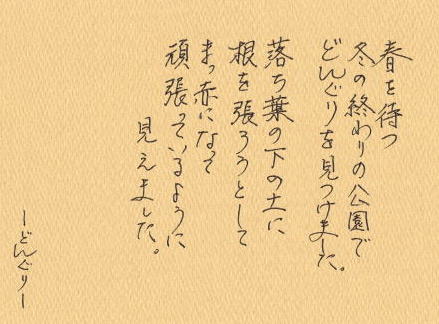 春を待つ
冬の終わりの公園で
どんぐりを見つけました。
落ち葉の下の土に
根を張ろうとして
まっ赤になって
頑張っているように
見えました。
ーどんぐりー